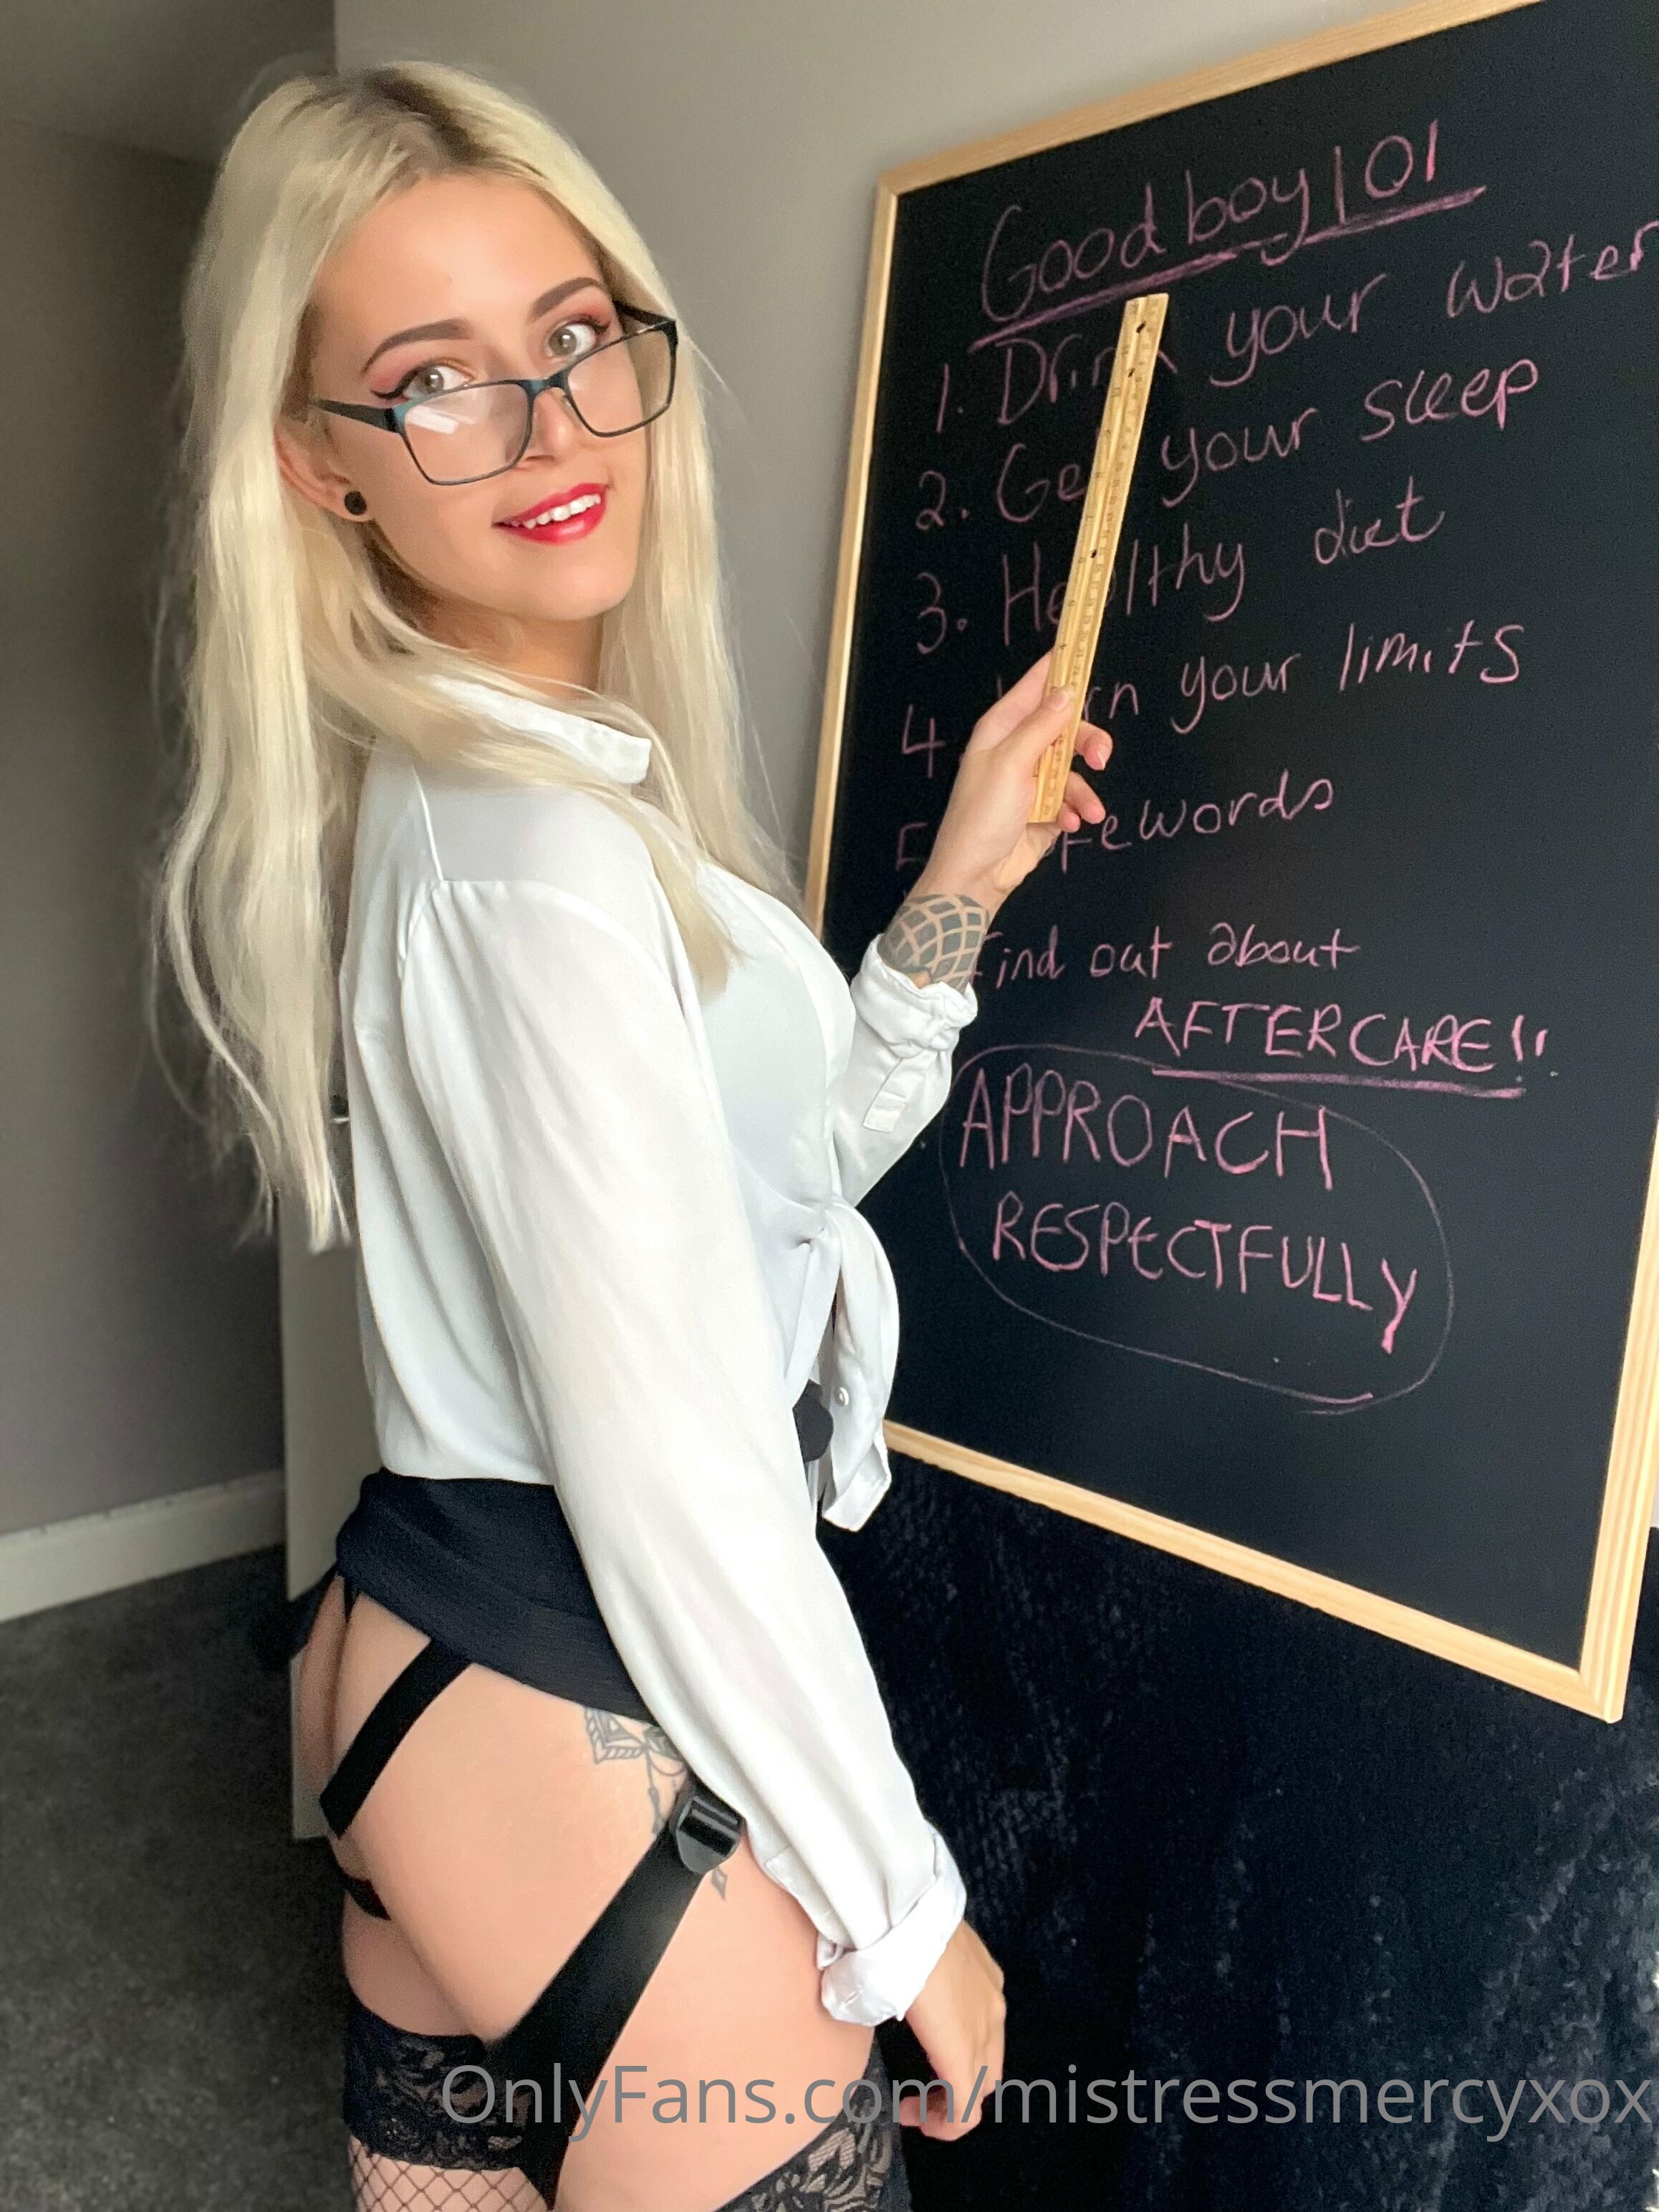 Good boy 101
1. your water
2. your sleep
3. Healthy diet
4 your limits
5
Find out about
AFTERCARE!!
APPROACH
RESPECTFULLY
OnlyFans.com/mistressmercyxox